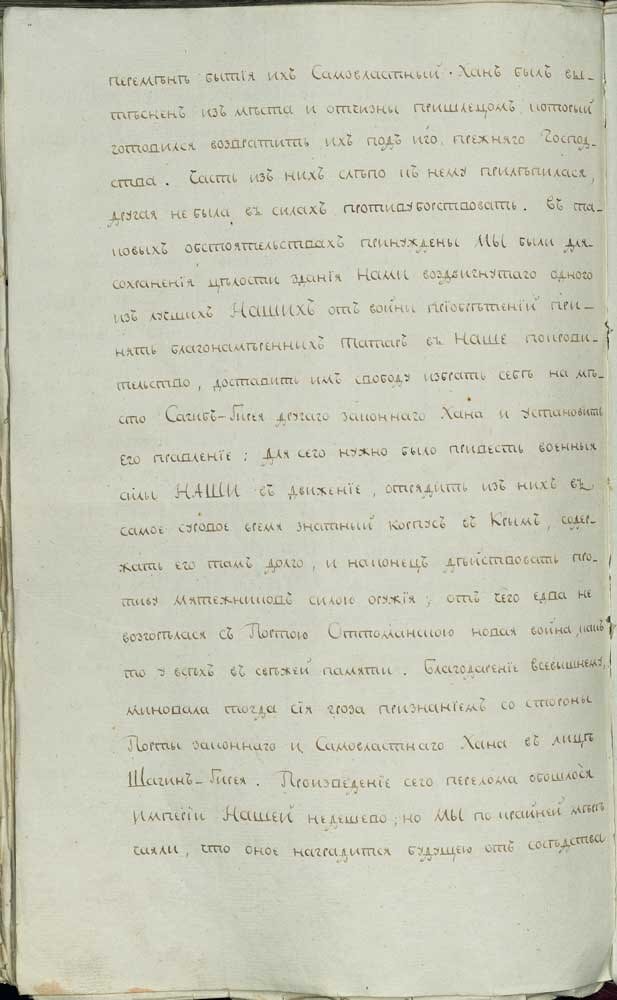 перемѣнѣ бытія ихъ Самовластный Ханъ былъ вы-
тѣсненъ изъ мѣста и отчизны пришлецомъ, который
готовился возвратить ихъ подъ иго прежняго Господ-
ства. Часть изъ нихъ слѣпо къ нему прилѣпилася,
другая не была въ силахъ противуборствовать. Въ та-
ковыхъ обстоятельствахъ принуждены МЫ были для
сохраненія цѣлости зданія Нами воздвигнутаго одного
изъ лучшихъ НАШИХЪ отъ войны пріобрѣтеній при-
нять благонамѣренныхъ Татаръ въ НАШЕ покрови-
тельство, доставить имъ свободу избрать себѣ на мѣ-
сто Сагибъ-Гирея другаго законнаго Хана и установить
его правленіе; для сего нужно было привесть военныя
силы НАШИ въ движеніе, отрядить изъ нихъ въ
самое суровое время знатный корпусъ въ Крымъ, содер-
жать его тамъ долго, и наконецъ дѣйствовать про-
тиву мятежниковъ силою оружія; отъ чего едва не
возгорѣлася съ Портою Оттоманскою новая война, какъ
то у всѣхъ въ свѣжей памяти. Благодареніе всевышнему,
миновала тогда сія гроза признаніемъ со стороны
Порты законнаго и Самовластнаго Хана въ лицѣ
Шагинъ-Гирея. Произведеніе сего перелома обошлося
Имперіи НАШЕЙ недешево; но МЫ по крайней мѣрѣ
чаяли, что оное наградится будущею отъ сосѣдства